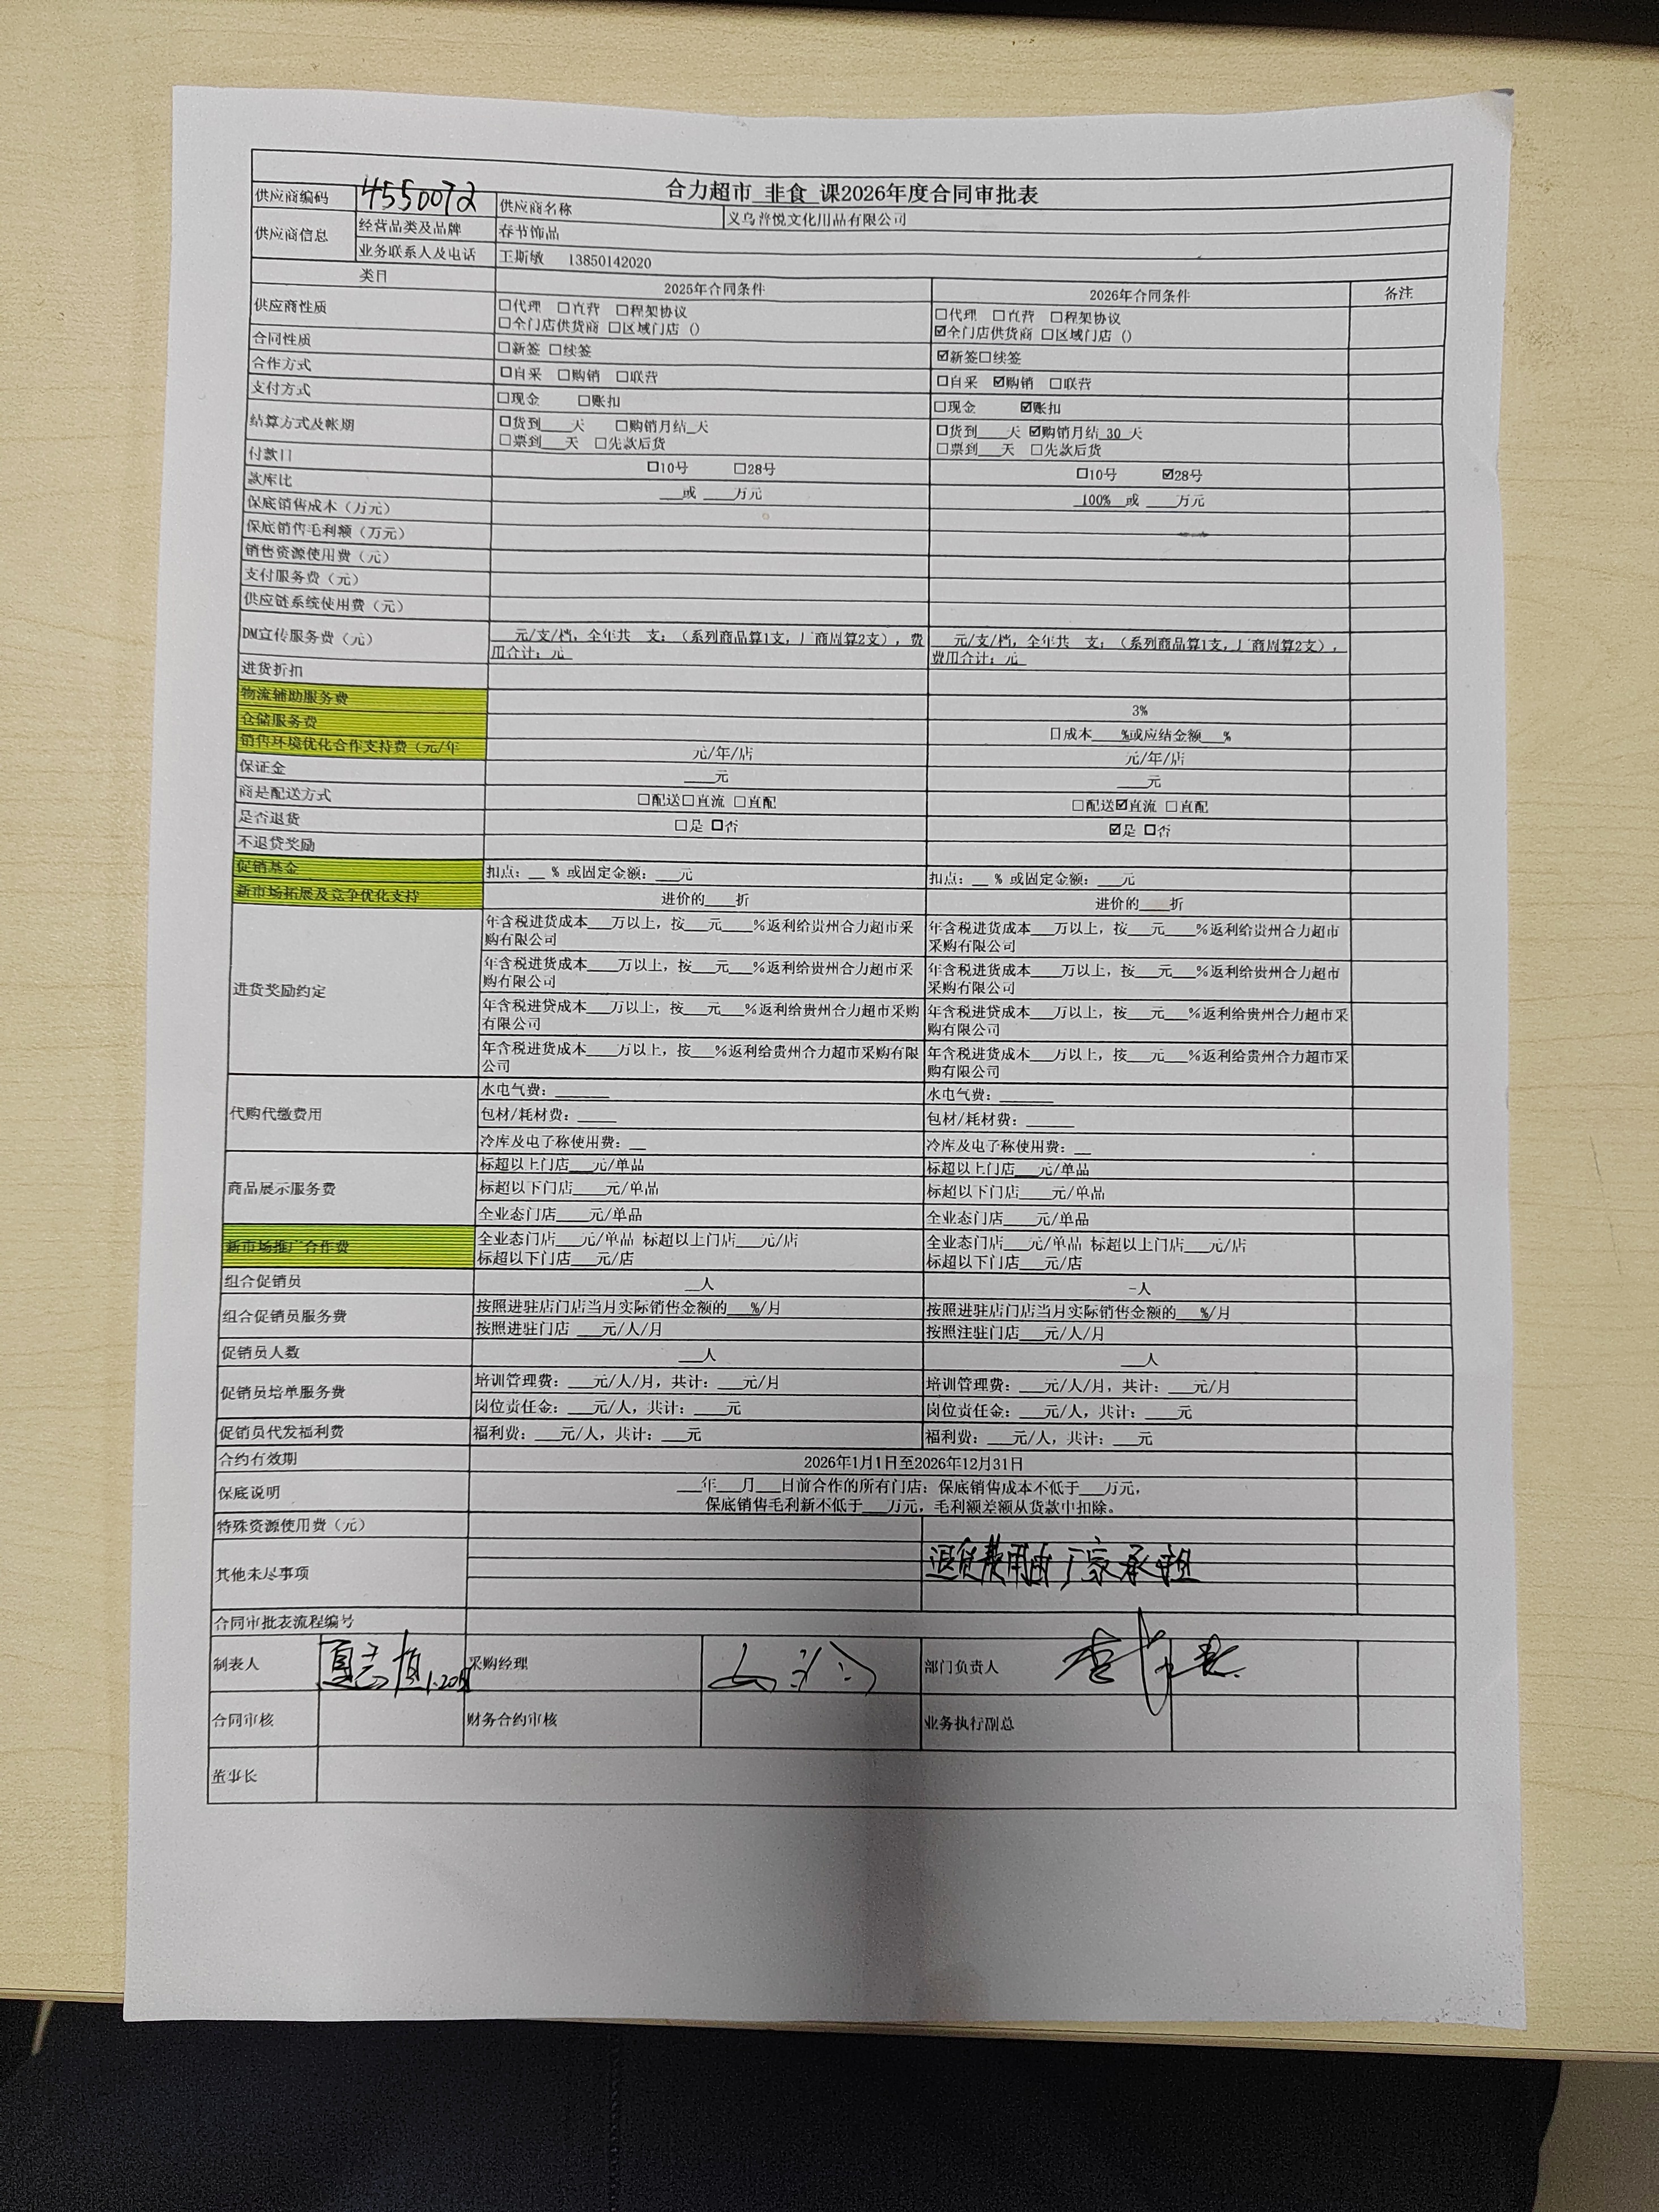 合力超市 非食 课2026年度合同审批表
供应商编码 4550072 供应商名称 义乌普悦文化用品有限公司
供应商信息 经营品类及品牌 春节饰品
业务联系人及电话 王斯敏 13850142020
类目 2025年合同条件 2026年合同条件 备注
供应商性质 □代理 □直营 □程架协议 □代理 □直营 □程架协议
□全门店供货商 □区域门店 () ☑全门店供货商 □区域门店 ()
合同性质 □新签 □续签 ☑新签□续签
合作方式 □自采 □购销 □联营 □自采 ☑购销 □联营
支付方式 □现金 □账扣 □现金 ☑账扣
结算方式及帐期 □货到___天 □购销月结_天 □货到___天 ☑购销月结 30 天
□票到___天 □先款后货 □票到___天 □先款后货
付款日 □10号 □28号 □10号 ☑28号
款库比 ___或 ____万元 100% 或 ____万元
保底销售成本（万元）
保底销售毛利额（万元）
销售资源使用费（元）
支付服务费（元）
供应链系统使用费（元）
DM宣传服务费（元） 元/支/档，全年共 支；（系列商品算1支，厂商周算2支），费 元/支/档，全年共 支；（系列商品算1支，厂商周算2支），
用合计：元 费用合计：元
进货折扣
物流辅助服务费 3%
仓储服务费 口成本___%或应结金额___%
销售环境优化合作支持费（元/年 元/年/店 元/年/店
保证金 ____元 ____元
商是配送方式 □配送□直流 □直配 □配送☑直流 □直配
是否退货 □是 □否 ☑是 □否
不退货奖励
促销基金 扣点：__ % 或固定金额：___元 扣点：__ % 或固定金额：___元
新市场拓展及竞争优化支持 进价的____折 进价的____折
进货奖励约定 年含税进货成本___万以上，按___元____%返利给贵州合力超市采 年含税进货成本___万以上，按___元___%返利给贵州合力超市
购有限公司 采购有限公司
年含税进货成本____万以上，按___元___%返利给贵州合力超市采 年含税进货成本____万以上，按___元___%返利给贵州合力超市
购有限公司 采购有限公司
年含税进贷成本___万以上，按___元___%返利给贵州合力超市采购 年含税进贷成本___万以上，按___元___%返利给贵州合力超市采
有限公司 购有限公司
年含税进货成本____万以上，按___%返利给贵州合力超市采购有限 年含税进货成本___万以上，按___元___%返利给贵州合力超市采
公司 购有限公司
代购代缴费用 水电气费：_______ 水电气费：_______
包材/耗材费：_____ 包材/耗材费：______
冷库及电了称使用费：__ 冷库及电了称使用费：__
商品展示服务费 标超以上门店___元/单品 标超以上门店___元/单品
标超以下门店____元/单品 标超以下门店____元/单品
全业态门店____元/单品 全业态门店____元/单品
新市场推广合作费 全业态门店___元/单品 标超以上门店___元/店 全业态门店___元/单品 标超以上门店___元/店
标超以下门店___元/店 标超以下门店___元/店
组合促销员 __人 -人
组合促销员服务费 按照进驻店门店当月实际销售金额的___%/月 按照进驻店门店当月实际销售金额的___%/月
按照进驻门店 ___元/人/月 按照注驻门店___元/人/月
促销员人数 ___人 ___人
促销员培单服务费 培训管理费：___元/人/月，共计：___元/月 培训管理费：___元/人/月，共计：___元/月
岗位责任金：___元/人，共计：____元 岗位责任金：___元/人，共计：____元
促销员代发福利费 福利费：___元/人，共计：___元 福利费：___元/人，共计：___元
合约有效期 2026年1月1日至2026年12月31日
保底说明 ___年___月___日前合作的所有门店：保底销售成本不低于___万元，
保底销售毛利新不低于___万元，毛利额差额从货款中扣除。
特殊资源使用费（元）
其他未尽事项 退货费用由厂家承担
合同审批表流程编号
制表人 采购经理 部门负责人
合同审核 财务合约审核 业务执行副总
董事长